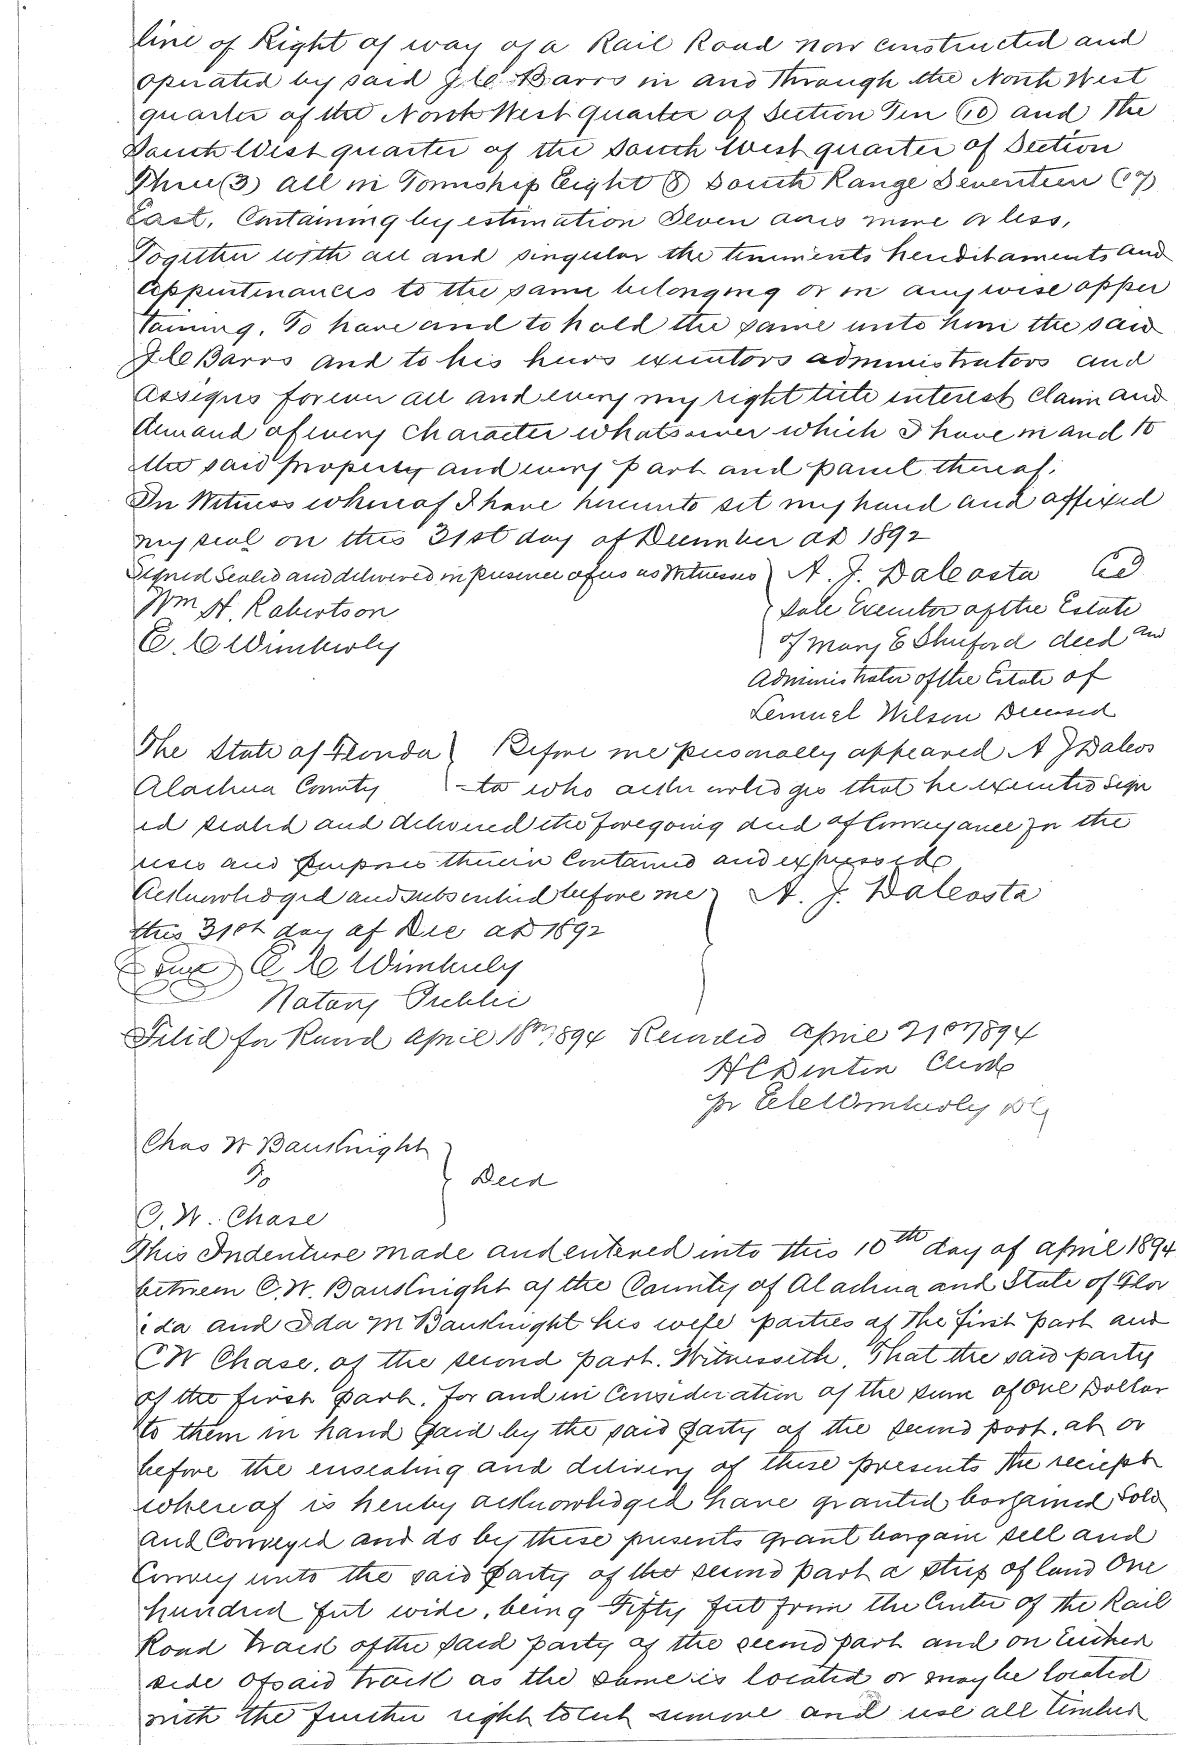 line of Right of way of a Rail Road now constructed and
operated by said J C Barrs in and through the North West
quarter of the North West quarter of Section Ten (10) and the
South West quarter of the South West quarter of Section
Three (3) all in Township Eight (8) South Range Seventeen (17)
East, Containing by estimation Seven acres more or less,
Together with all and singular the tenements hereditaments and
appurtenances to the same belonging or in anywise apper
taining. To have and to hold the same unto him the said
J C Barrs and to his heirs executors administrators and
assigns forever all and every my right title interest claim and
demand of every character whatsoever which I have in and to
the said property and every part and parcel thereof.
In Witness whereof I have hereunto set my hand and affixed
my seal on this 31st day of December AD 1892
Signed Sealed and delivered in presence of us as Witnesses } A. J. Dacosta
Wm H. Robertson
Sole Executor of the Estate
E. C Wimberly
of Mary E Shuford decd and
Administrator of the Estate of
Lemuel Wilson Deceased
The State of Florida } Before me personally appeared A J Dacos
Alachua County } -ta who acknowledges that he executed sign
ed sealed and delivered the foregoing deed of Conveyance for the
uses and purposes therein contained and expressed
Acknowledged and subscribed before me } A. J. Dacosta
this 31st day of Dec AD 1892
E C Wimberly
Notary Public
Filed for Record April 18th 1894 Recorded April 21st 1894
H C Denton Clerk
pr E C Wimberly DC
Chas W Bauknight
To } Deed
C. W. Chase
This Indenture made and entered into this 10th day of April 1894
between C. W. Bauknight of the County of Alachua and State of Flor
ida and Ida M Bauknight his wife parties of the first part and
C W Chase, of the second part. Witnesseth, That the said party
of the first part, for and in Consideration of the sum of One Dollar
to them in hand paid by the said party of the second part, at or
before the ensealing and delivery of these presents the reciept
whereof is hereby acknowledged have granted bargained sold
and Conveyed and do by these presents grant bargain sell and
Convey unto the said party of the second part a strip of land One
hundred feet wide, being Fifty feet from the Center of the Rail
Road track of the said party of the second part and on Either
side of said track as the same is located or may be located
with the further right to cut remove and use all timber